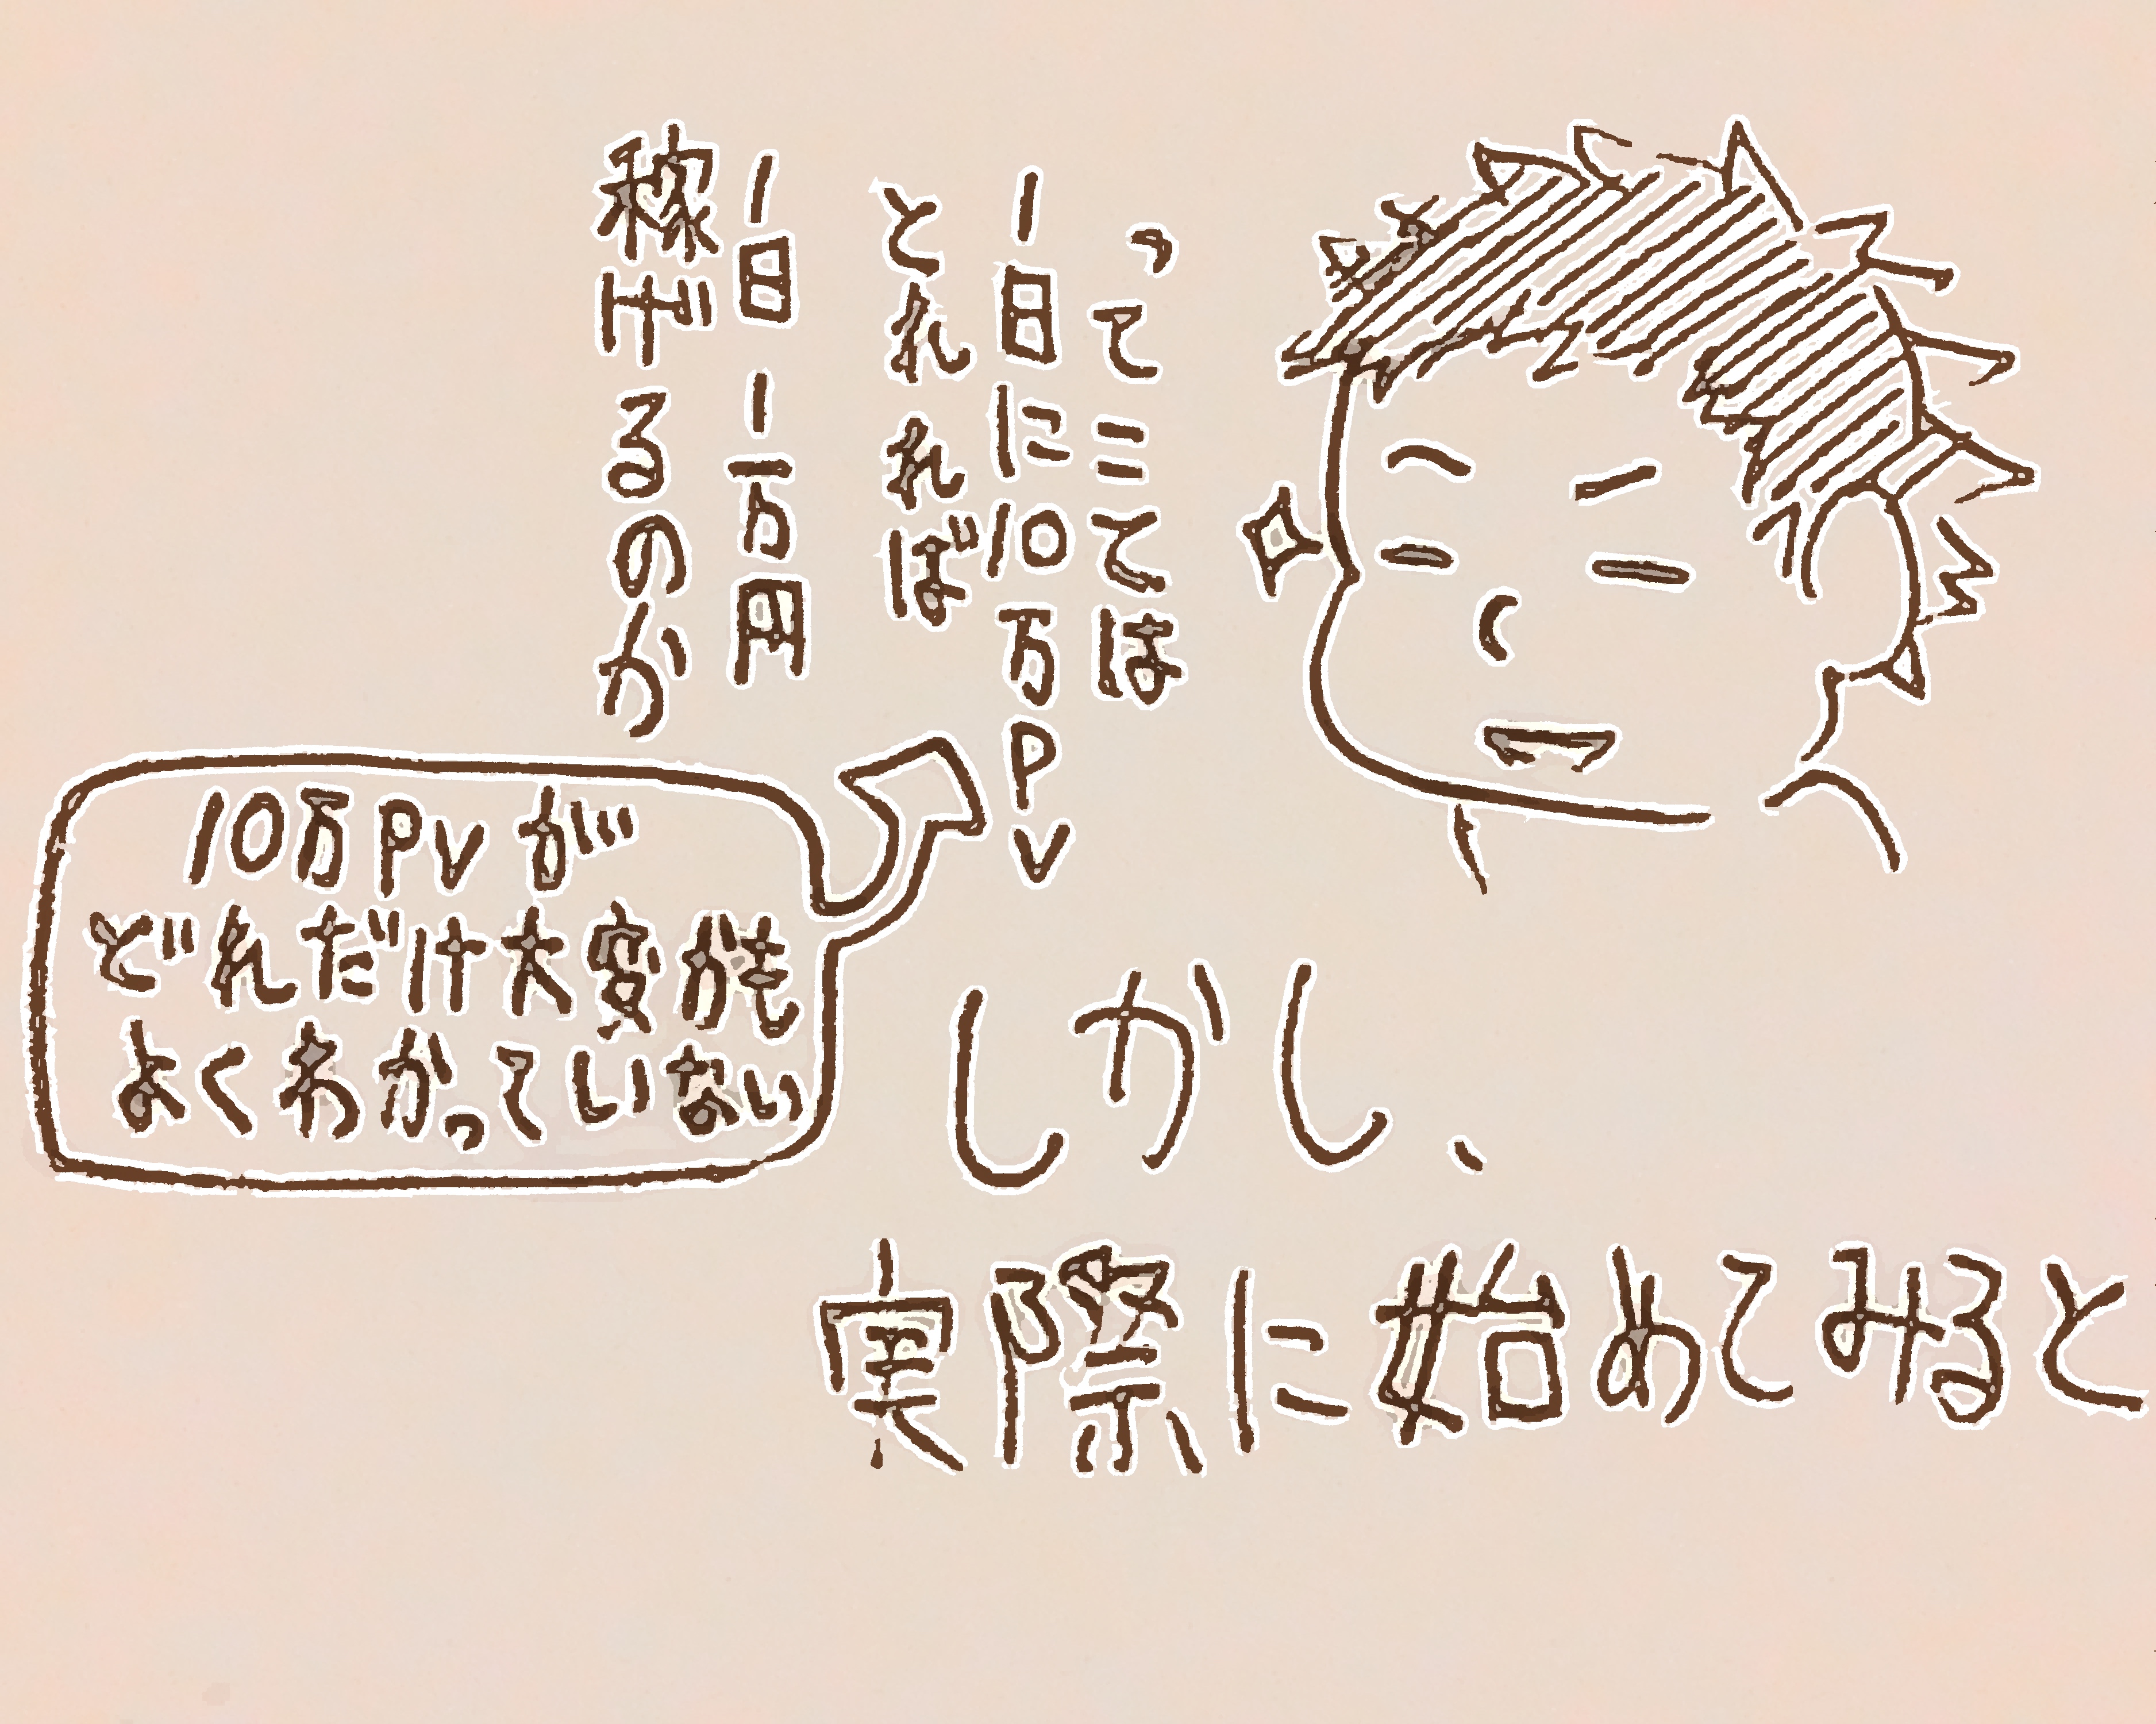 ってことは
1日に10万PV
とれれば
1日1万円
稼げるのか
10万PVが
どれだけ大変かも
よくわかっていない
しかし、
実際に始めてみると